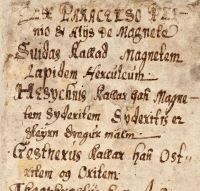 EX PARACELSO PLI-
nio & Alijs de Magnete
Suidas Kallad Magnetem
Lapidem Herculeum.
Hesychius Kallar han Magne-
tem Syderitem Sydertis er
Gestnerus Kallar han Ost-
ritem og Oritem